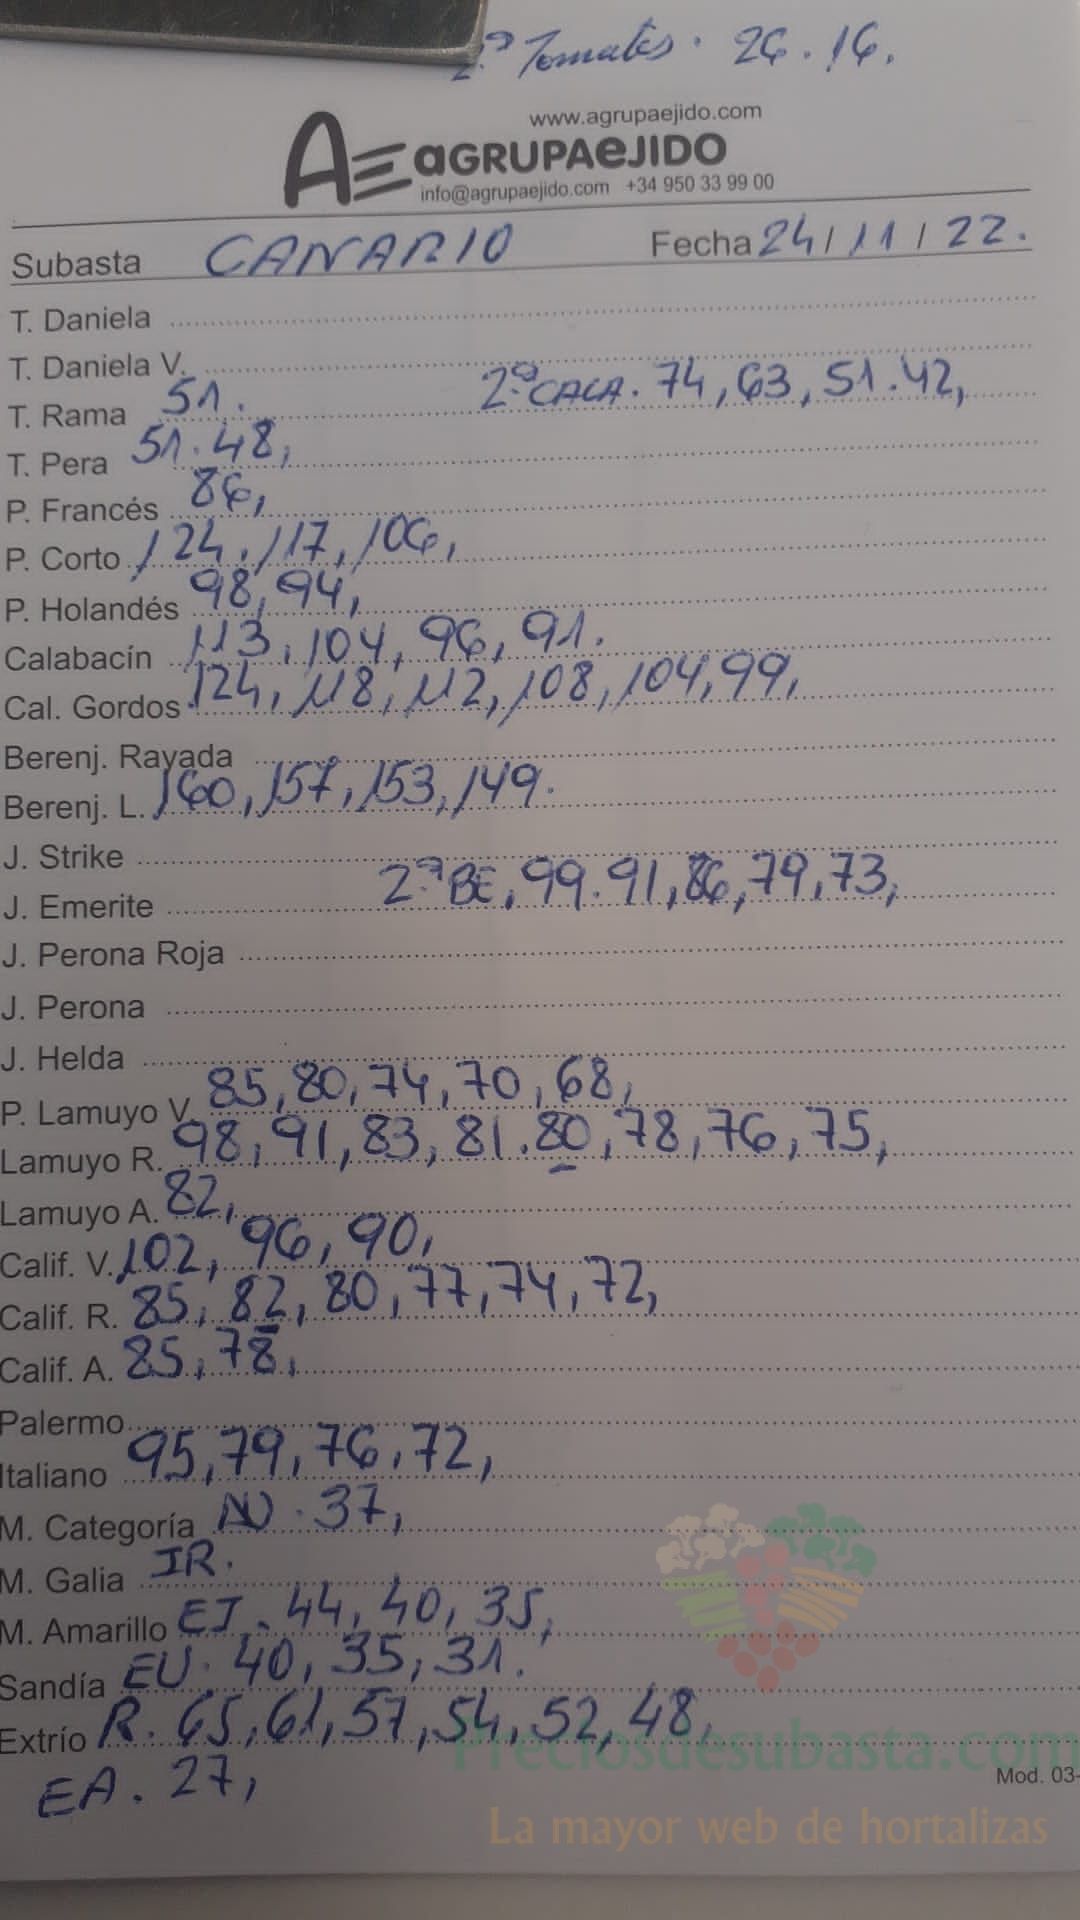 2ª Tomates. 26.16.
www.agrupaejido.com
AE aGRUPAeJIDO
info@agrupaejido.com +34 950 33 99 00
Subasta CANARIO Fecha 24/11/22.
T. Daniela
T. Daniela V.
T. Rama 51. 2ª CALA. 74, 63, 51. 42,
T. Pera 51. 48,
P. Francés 86,
P. Corto 124, 117, 106,
P. Holandés 98, 94,
Calabacín 113, 104, 96, 91.
Cal. Gordos 124, 118, 112, 108, 104, 99,
Berenj. Rayada
Berenj. L. 160, 157, 153, 149.
J. Strike
J. Emerite 2ª BE, 99. 91, 86, 79, 73,
J. Perona Roja
J. Perona
J. Helda
P. Lamuyo V. 85, 80, 74, 70, 68,
Lamuyo R. 98, 91, 83, 81. 80, 78, 76, 75,
Lamuyo A. 82,
Calif. V. 102, 96, 90,
Calif. R. 85, 82, 80, 77, 74, 72,
Calif. A. 85, 78,
Palermo
Italiano 95, 79, 76, 72,
M. Categoría 37,
M. Galia IR.
M. Amarillo EJ. 44, 40, 35,
Sandía EU. 40, 35, 31.
Extrío R. 65, 61, 57, 54, 52, 48,
EA. 27,
Preciosdesubasta.com
Mod. 03-
La mayor web de hortalizas